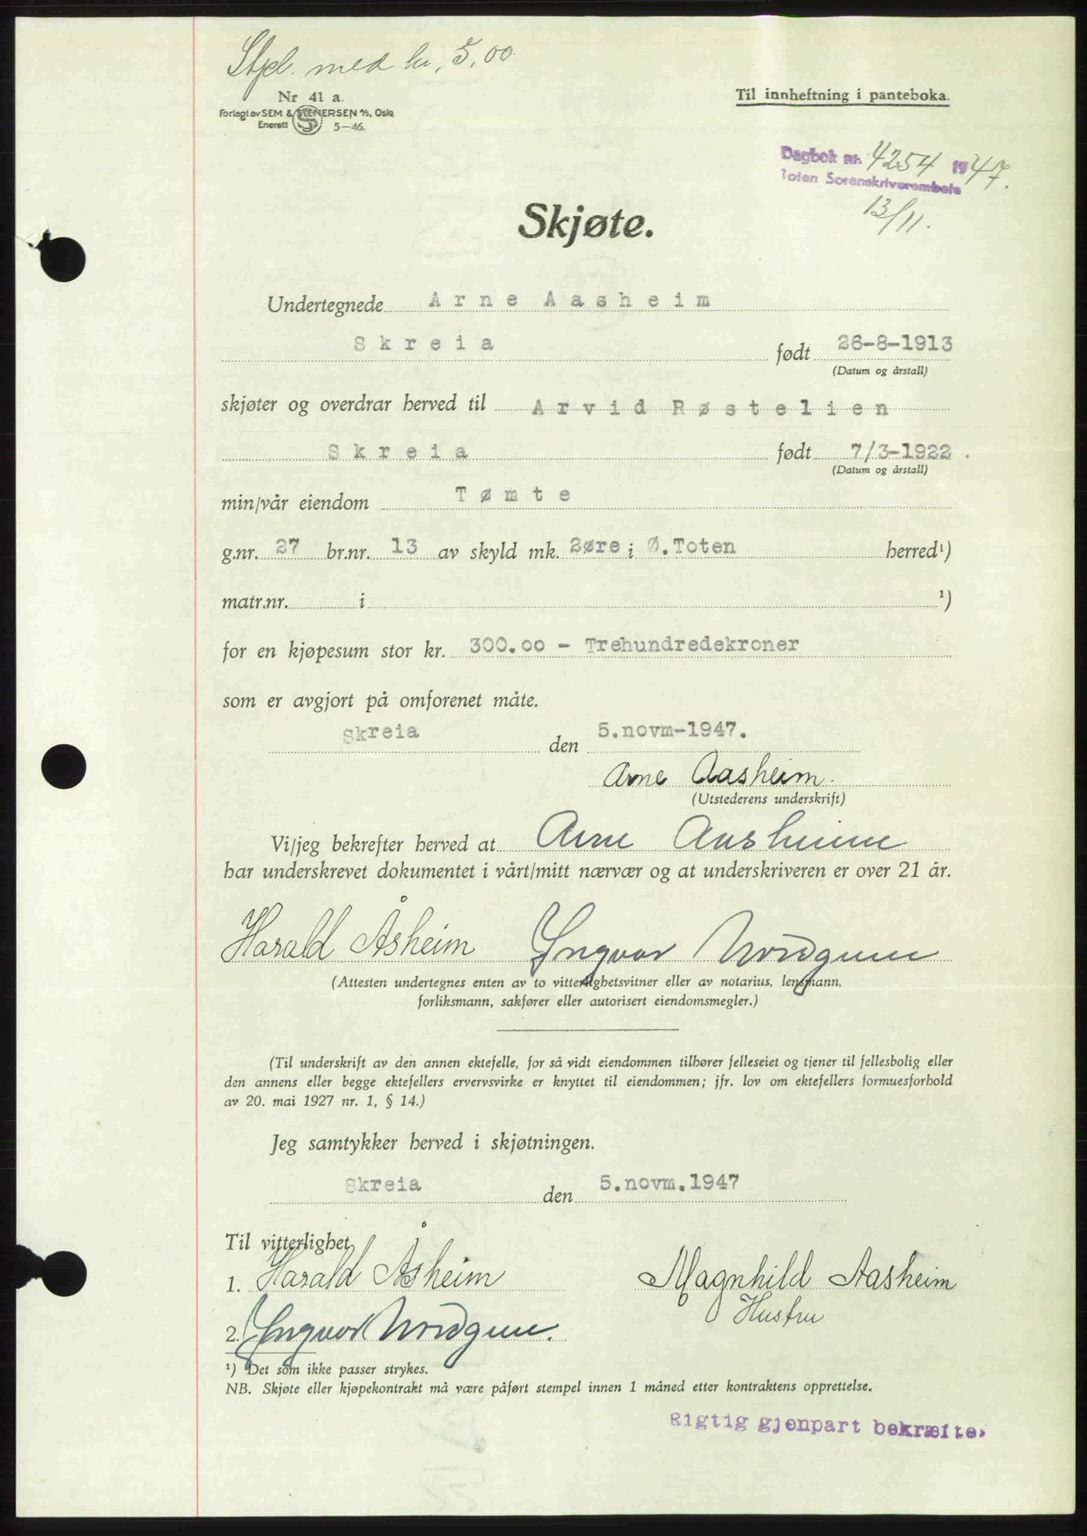 Stpl. med kr. 5,00
Nr 41 a.
Forlagt av SEM & STENERSEN A/S, Oslo
Enerett 5-46.
Til innheftning i panteboka.
Dagbok nr. 4254 1947.
Toten Sorenskriverembete
13/11.
Skjøte.
Undertegnede Arne Aasheim
Skreia født 26-8-1913
(Datum og årstall)
skjøter og overdrar herved til Arvid Røstelien
Skreia født 7/3-1922.
(Datum og årstall)
min/vår eiendom Tømte
g.nr. 27 br.nr. 13 av skyld mk. 2øre i Ø.Toten herred¹)
matr.nr. i ¹)
for en kjøpesum stor kr. 300.00 - Trehundredekroner
som er avgjort på omforenet måte.
Skreia den 5.novm-1947.
Arne Aasheim.
(Utstederens underskrift)
Vi/jeg bekrefter herved at Arne Aasheim
har underskrevet dokumentet i vårt/mitt nærvær og at underskriveren er over 21 år.
Harald Åsheim Yngvar Nordgun
(Attesten undertegnes enten av to vitterlighetsvitner eller av notarius, lensmann,
forliksmann, sakfører eller autorisert eiendomsmegler.)
(Til underskrift av den annen ektefelle, for så vidt eiendommen tilhører felleseiet og tjener til fellesbolig eller
den annens eller begge ektefellers ervervsvirke er knyttet til eiendommen; jfr. lov om ektefellers formuesforhold
av 20. mai 1927 nr. 1, § 14.)
Jeg samtykker herved i skjøtningen.
Skreia den 5.novm.1947
Til vitterlighet
1. Harald Åsheim Magnhild Aasheim
Hustru
2. Yngvar Nordgun.
¹) Det som ikke passer strykes.
NB. Skjøte eller kjøpekontrakt må være påført stempel innen 1 måned etter kontraktens opprettelse.
Rigtig gjenpart bekræftes